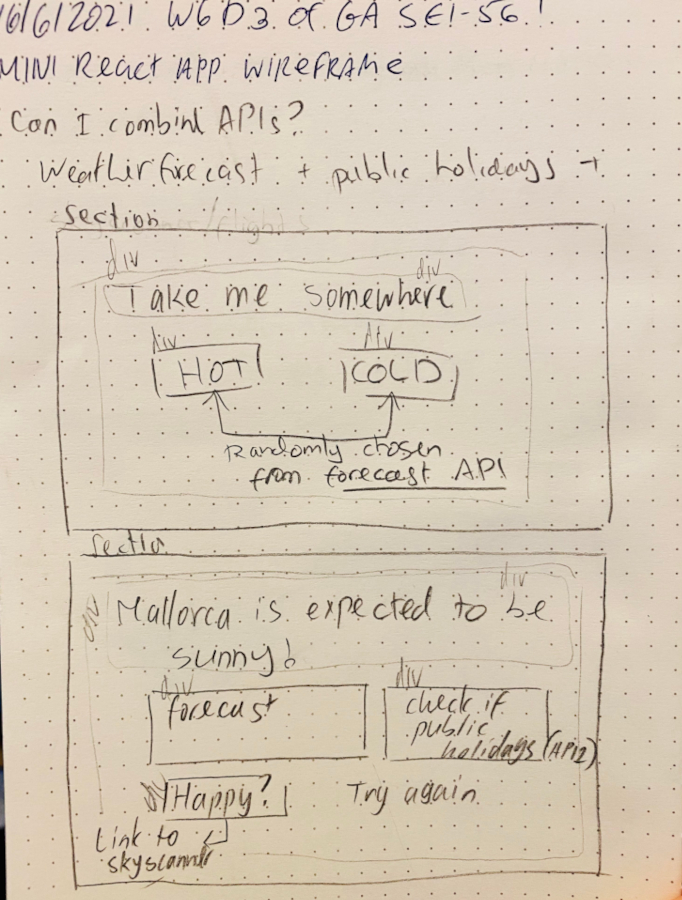 16/6/2021 W6D3 of GA SEI-56!
MINI React APP WIREFRAME
Can I combine APIs?
Weather forecast + public holidays →
section
div
div
Take me somewhere
div
div
HOT
COLD
Randomly chosen
from forecast API
Sectio
div
div
Mallorca is expected to be
sunny!
div
div
forecast
check if
public
holidays (API2)
Happy?
Try again
Link to
skyscanner